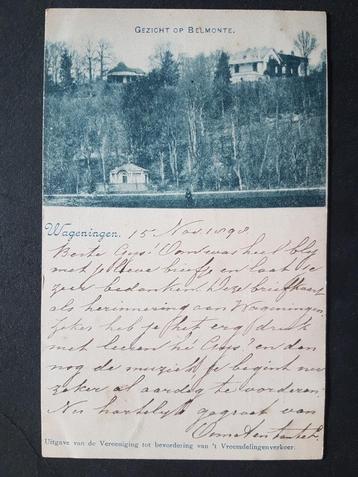 GEZICHT OP BELMONTE.
Wageningen. 15 Nov. 1898.
Beste Cuys! Oom was heel blij
met je lieve briefje en laat je
zeer bedanken. Deze briefkaart
als herinnering aan Wageningen.
Zeker heb je het erg druk
met leeren hè Cuys? en dan
nog de muziek, je begint nu
zeker al aardig te vorderen.
Nu hartelijk gegroet van
Oom en tante
Uitgave van de Vereeniging tot bevordering van 't Vreemdelingenverkeer.